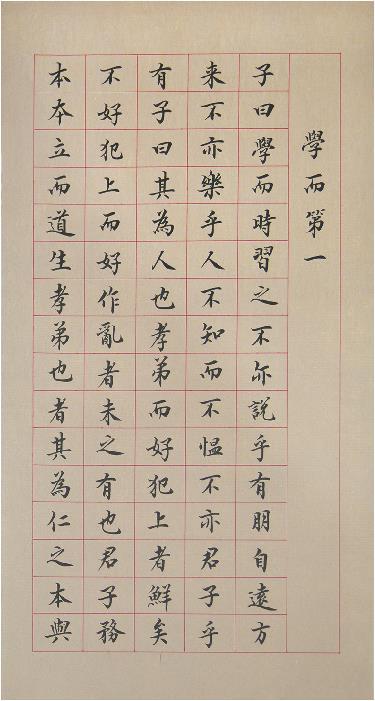 學而第一
子曰學而時習之不亦說乎有朋自遠方
来不亦樂乎人不知而不愠不亦君子乎
有子曰其為人也孝弟而好犯上者鮮矣
不好犯上而好作亂者未之有也君子務
本本立而道生孝弟也者其為仁之本與